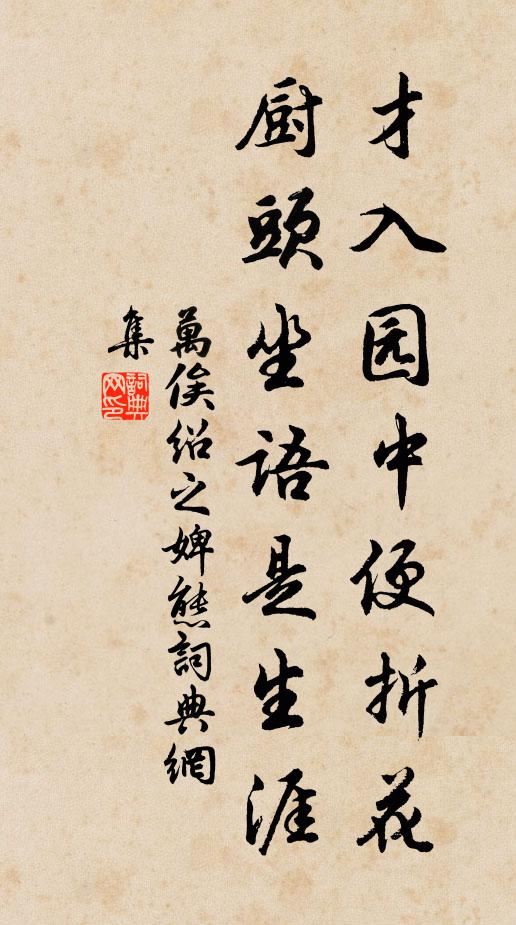 才入园中便折花
厨頭坐語是生涯
萬俟绍之婢態詞典網
集
詞典
网印